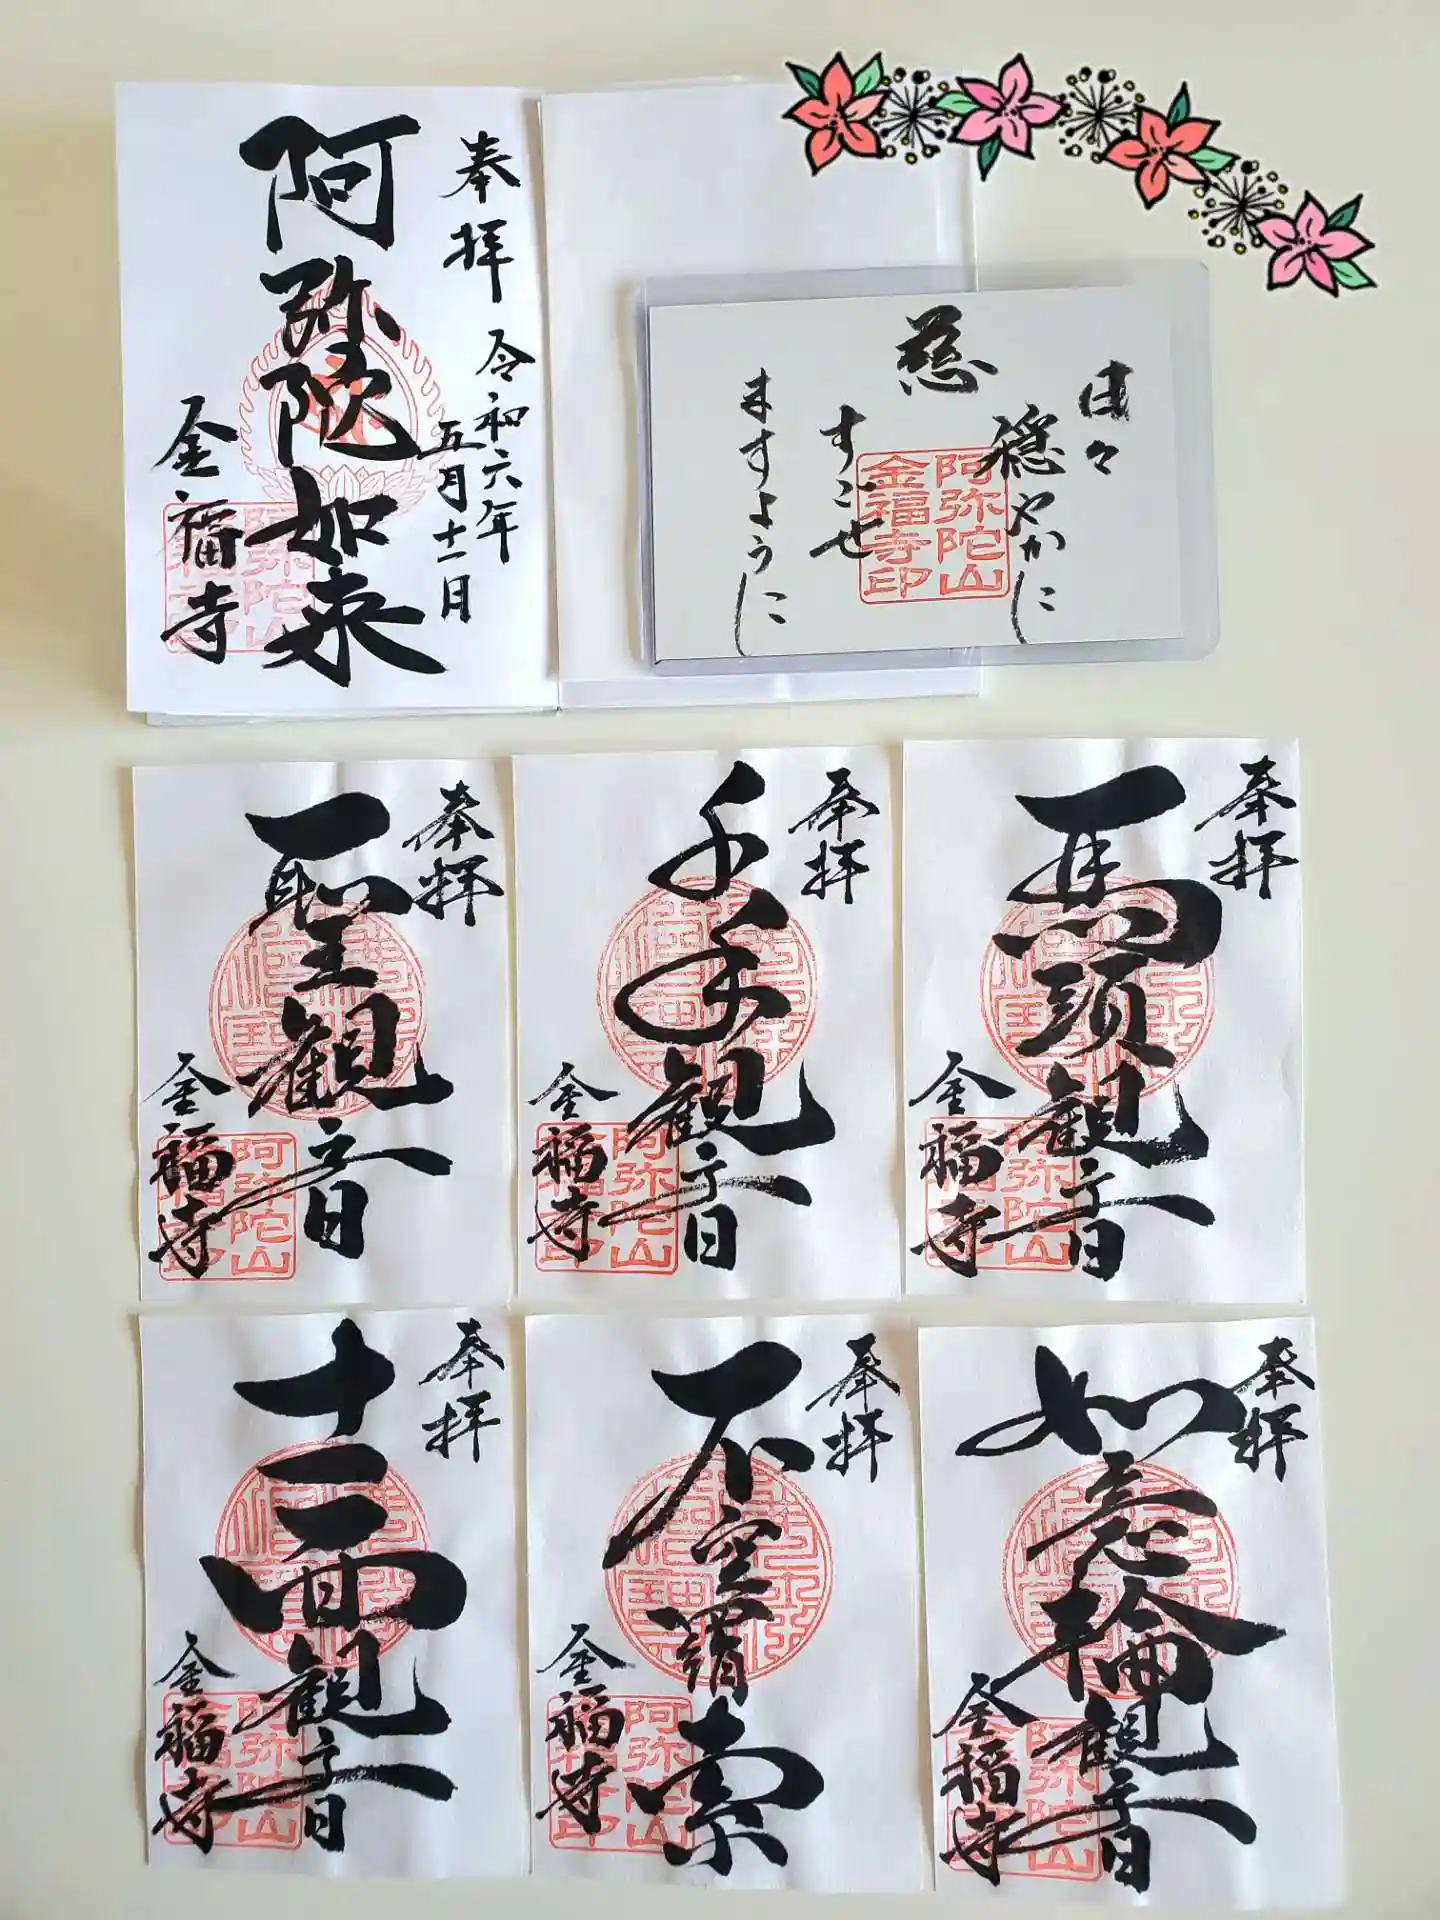 奉拝
令和六年
五月十一日
阿弥陀如来
金福寺
阿弥陀山
金福寺印
日々
穏やかに
慈
すごせ
ますように
阿弥陀山
金福寺印
奉拝
聖観音
金福寺
阿弥陀山
奉拝
千手観音
金福寺
阿弥陀山
奉拝
馬頭観音
金福寺
阿弥陀山
奉拝
十一面観音
金福寺
阿弥陀山
奉拝
不空羂索
金福寺
阿弥陀山
奉拝
如意輪観音
金福寺
阿弥陀山